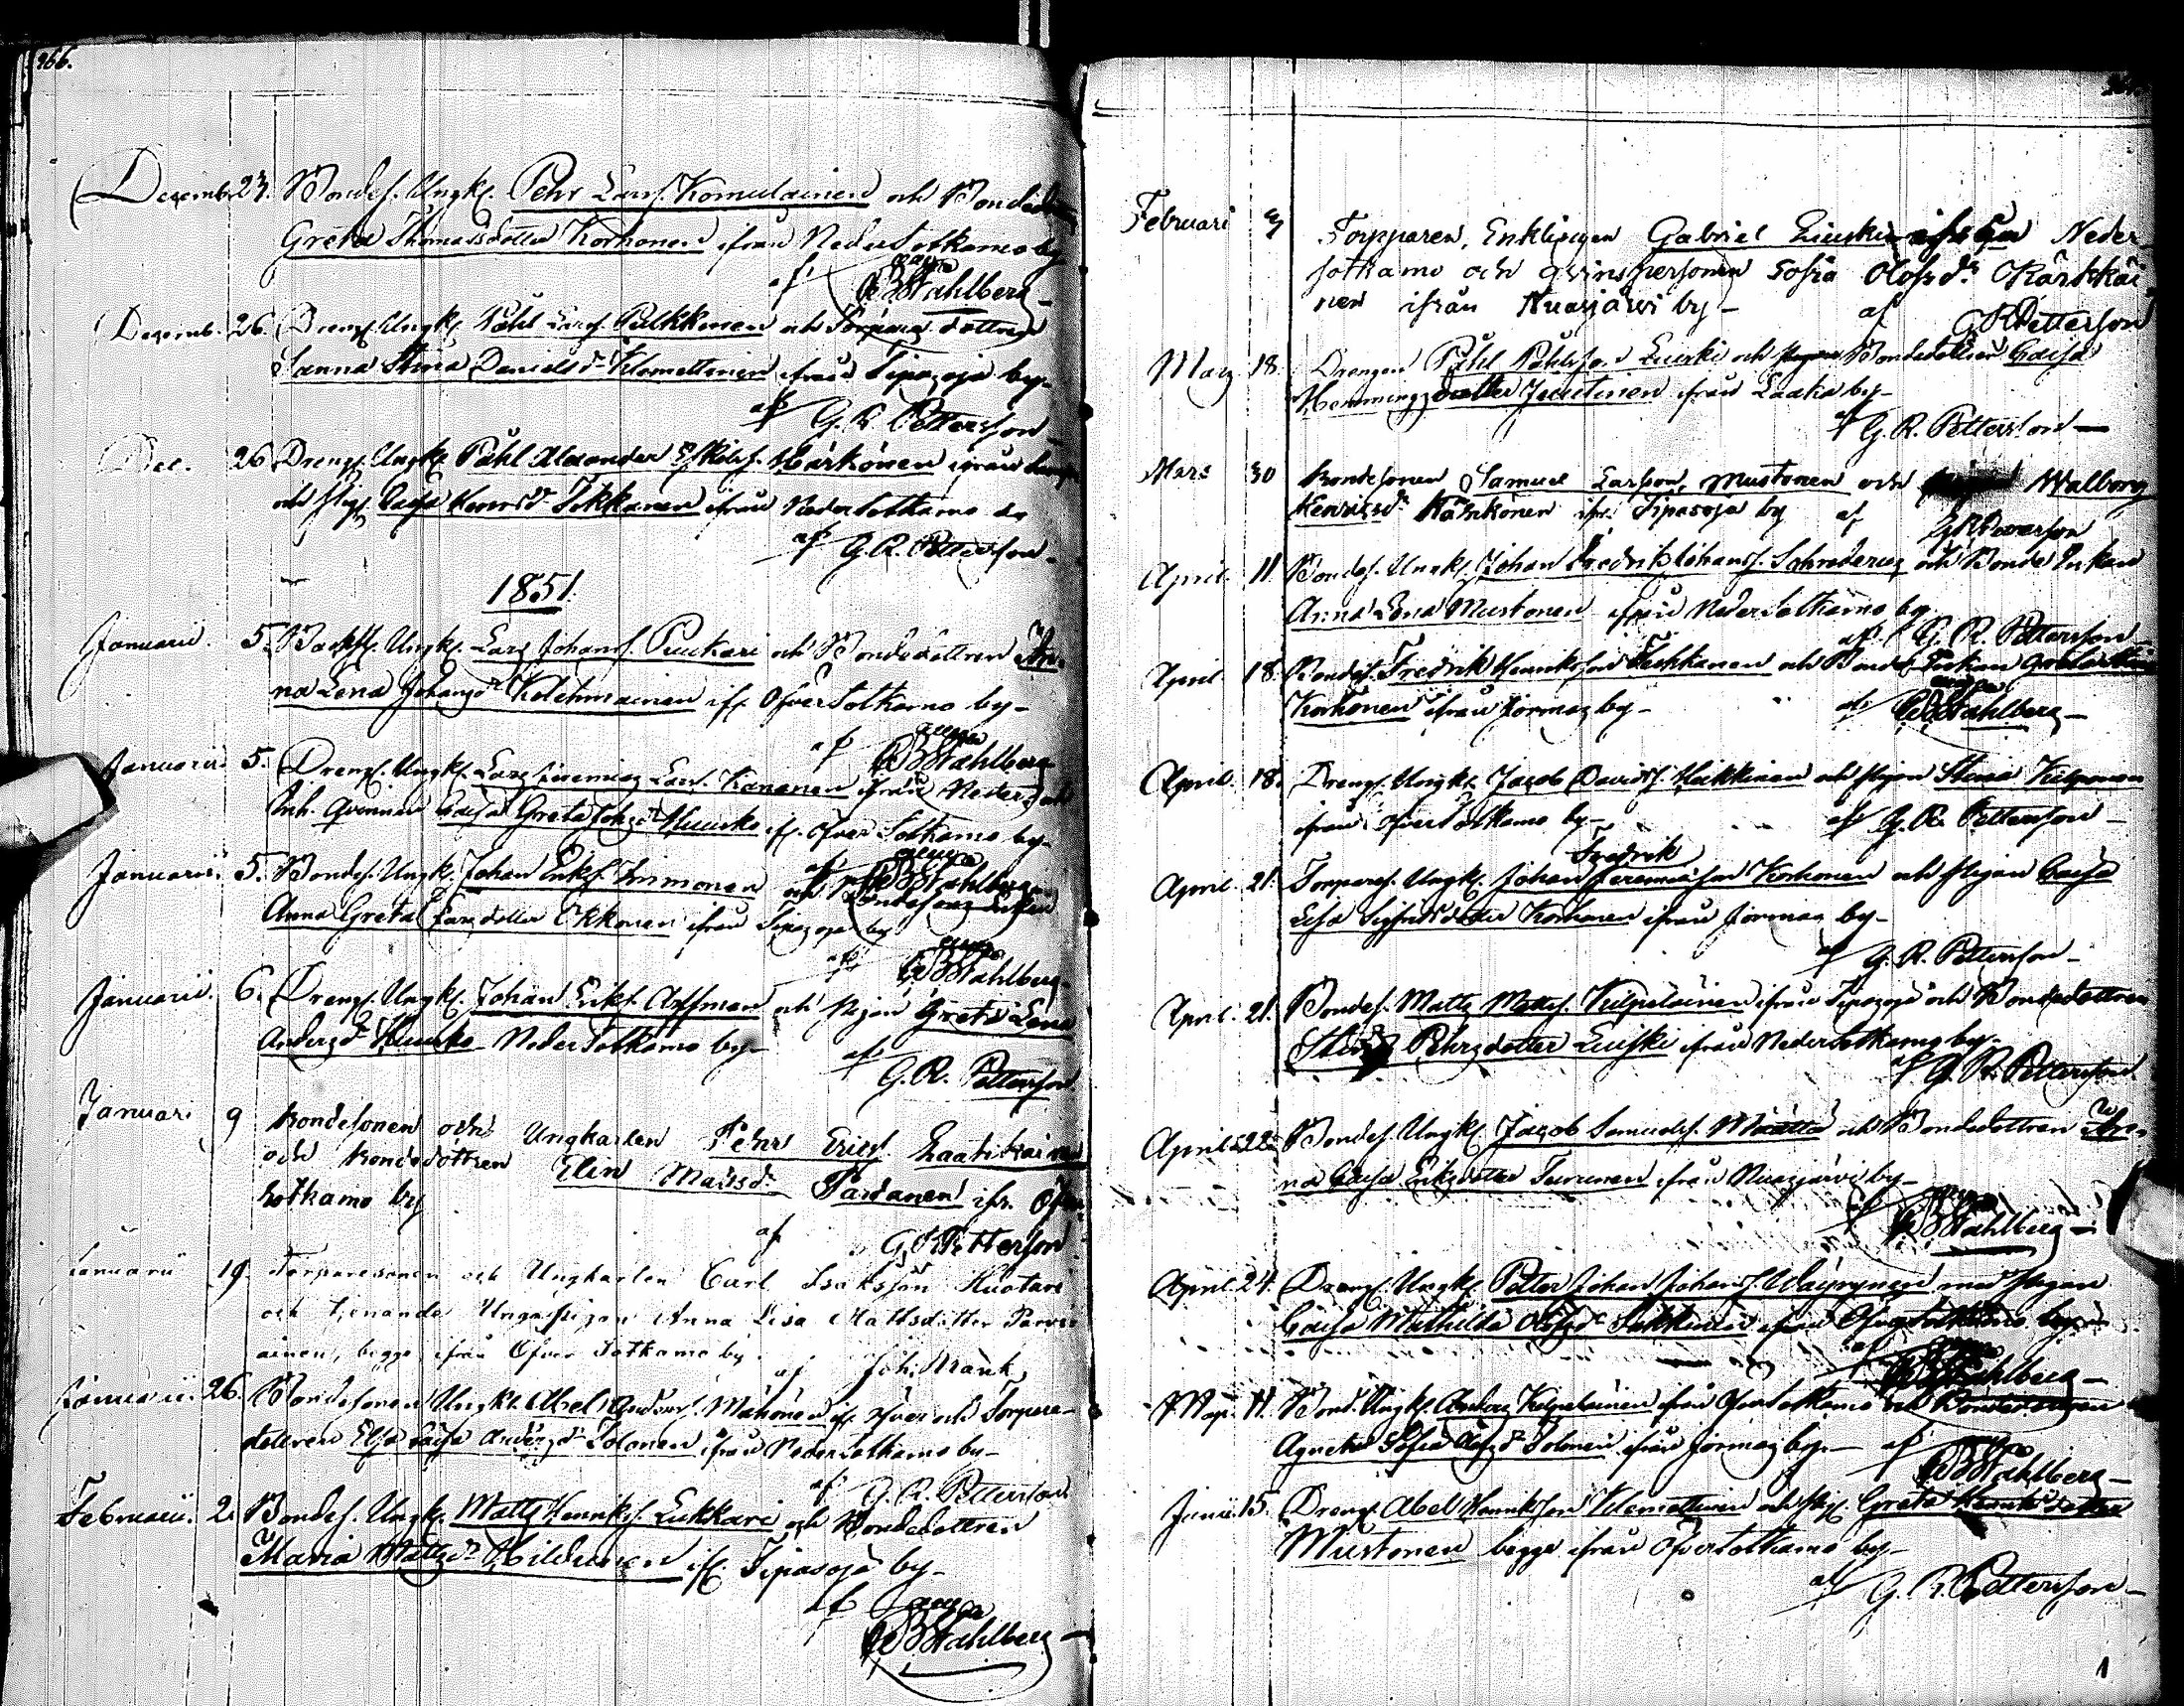 966.
Dezemb. 23. Bondes. Ungk. Pehr Larss. Komulainen och Bonded.
Greta Thomasdotter Korhonen ifrån Neder Sotkamo by
af Wahlberg
Dezemb. 26. Drengs. Ungk. Påhl Larss. Pulkkinen och Torpare dottren
Sanna Stina Danielsdr Klemettinen ifrån Tipasoja by
af G. R. Pettersson
Dec. 26 Drengs. Ungk. Påhl Alexander Härkönen ifrån
och Pig. Caisa Henrsdr Tikkanen ifrån Neder Sotkamo
af G. R. Pettersson
1851.
Januarii. 5. Ungk. Lars Johans. Puukari och Bondedottren An-
na Lena Johansdr Kolehmainen ifr. Öfver Sotkamo by
af Wahlberg
Januarii 5. Drengs. Ungk. Lars Jeremias Larss. Kananen ifrån Neder och
Inh. Caisa Greta Huusko if. Öfver Sotkamo by
af Wahlberg
Januarii. 5. Bondes. Ungk. Johan Eriks. Immonen och
Anna Greta Larsdotter Okkonen ifrån Tipasoja by
af Wahlberg
Januarii. 6. Drengs. Ungk. Johan Eriks. Affman och Pigan Greta Lena
Andersdr Huusko Neder Sotkamo by
af
G. R. Pettersson
Januari 9 Bondesonen och Ungkarlen Pehr Ericss. Laatikainen
och Bondedottren Elin Matsdr Partanen ifr. Öfver
Sotkamo by
af G. R. Pettersson
Januarii 19. Torparesonen och Ungkarlen Carl Isaksson Huotari
och tjenande Ungapigan Anna Lisa Mattsdotter Parvi-
ainen, begge ifrån Öfver Sotkamo by.
af Joh. Frank
Januarii. 26. Bondesonen Ungk. Abel Anders. Mähönen if. Öfver och Torpare-
dottren Elsa Caisa Andersdr Tolonen ifrån Neder Sotkamo by
af G. R. Pettersson
Februarii. 2. Bondes. Ungk. Matts Henriks. Lukkari och Bondedottren
Maria Mattsdr Hildunen if. Tipasoja by
af Wahlberg
Februari 9 Torpparen, Enklingen Gabriel Liuski ifrån Neder
sotkamo och qvinspersonen Sofia Olofsdr Kärkkäi
nen ifrån Nuasjärvi by af
G R Petterson
Marz 18. Drengen Påhl Påhlson Liuski och Bondedottren Caisa
Hemmingsdotter Juntunen ifrån Laaka by
af G. R. Pettersson
Mars 30 Bondesonen Samuel Larsson Mustonen och Walborg
Henricsdr Härkönen ifr. Tipasoja by af
April. 11. Bondes. Ungk. Johan Fredrik Johans. Schroderus och Bonde Enkan
Anna Lena Mustonen ifrån Neder Sotkamo by
af G. R. Pettersson
April. 18. Bondes. Fredrik Henriksson Tashkanen och Bondes. Enkan
Korhonen ifrån Jormas by
af Wahlberg
April. 18. Drengs. Ungk. Jacob Davids. Hakkinen och Pigan Stina Kilponen
ifrån Öfver Sotkamo by
af G. R. Pettersson
Fredrik
April. 21. Torpares. Ungk. Johan Jeremiasson Korhonen och Pigan Caisa
Lisa Sigfridsdotter Korhonen ifrån Jormas by
af G. R. Pettersson
April. 21. Bondes. Matts Matts. Kilpeläinen ifrån Tipasoja och Bondedottren
Stina Pehrsdotter Liuski ifrån Neder Sotkamo by
af G. R. Pettersson
April. 22. Bondes. Ungk. Jacob Samuels. Määttä och Bondedottren An-
na Caisa Eriksdotter Turunen ifrån Nuasjärvi by
af Wahlberg
April. 24. Drengs. Ungk. Petter Johan Johans. Wäyrynen med Pigan
Caisa Mathilda Olofsdr ifrån Öfver Sotkamo by
af Wahlberg
Maj. 11. Bond. Ungk. Anders Kilpeläinen ifrån Öfver Sotkamo och
Agneta Sofia Olofsdr Tolonen ifrån Jormas by af
Wahlberg
Junii 15. Drengs. Abel Henriksson Klemettinen och Pig. Greta Henriksdotter
Mustonen begge ifrån Öfver Sotkamo by
af G. R. Pettersson
1